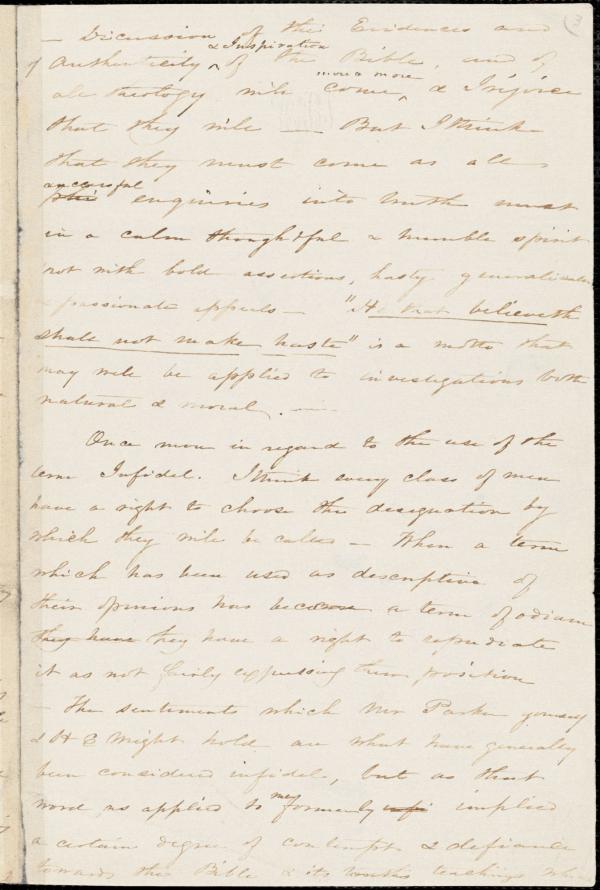 (3
— Discussion of the Evidences and
& Inspiration
Authenticity ^ of the Bible, and of
more & more
all theology will come ^ & I rejoice
that they will — But I think
that they must come as all
successful
enquiries into truth must
in a calm thoughtful & humble spirit
not with bold assertions, hasty generalizations
& passionate appeals — "He that believeth
shall not make haste" is a motto that
may well be applied to investigations both
natural & moral. —
Once more in regard to the use of the
term Infidel. I think every class of men
have a right to choose the designation by
which they will be called — When a term
which has been used as descriptive of
their opinions has become a term of odium
they have they have a right to repudiate
it as not fairly expressing their position
— The sentiments which Mr Parker yourself
& H C Wright hold are what have generally
been considered infidel, but as that
word as applied to men formerly implied
a certain degree of contempt & defiance
towards the Bible & its teachings